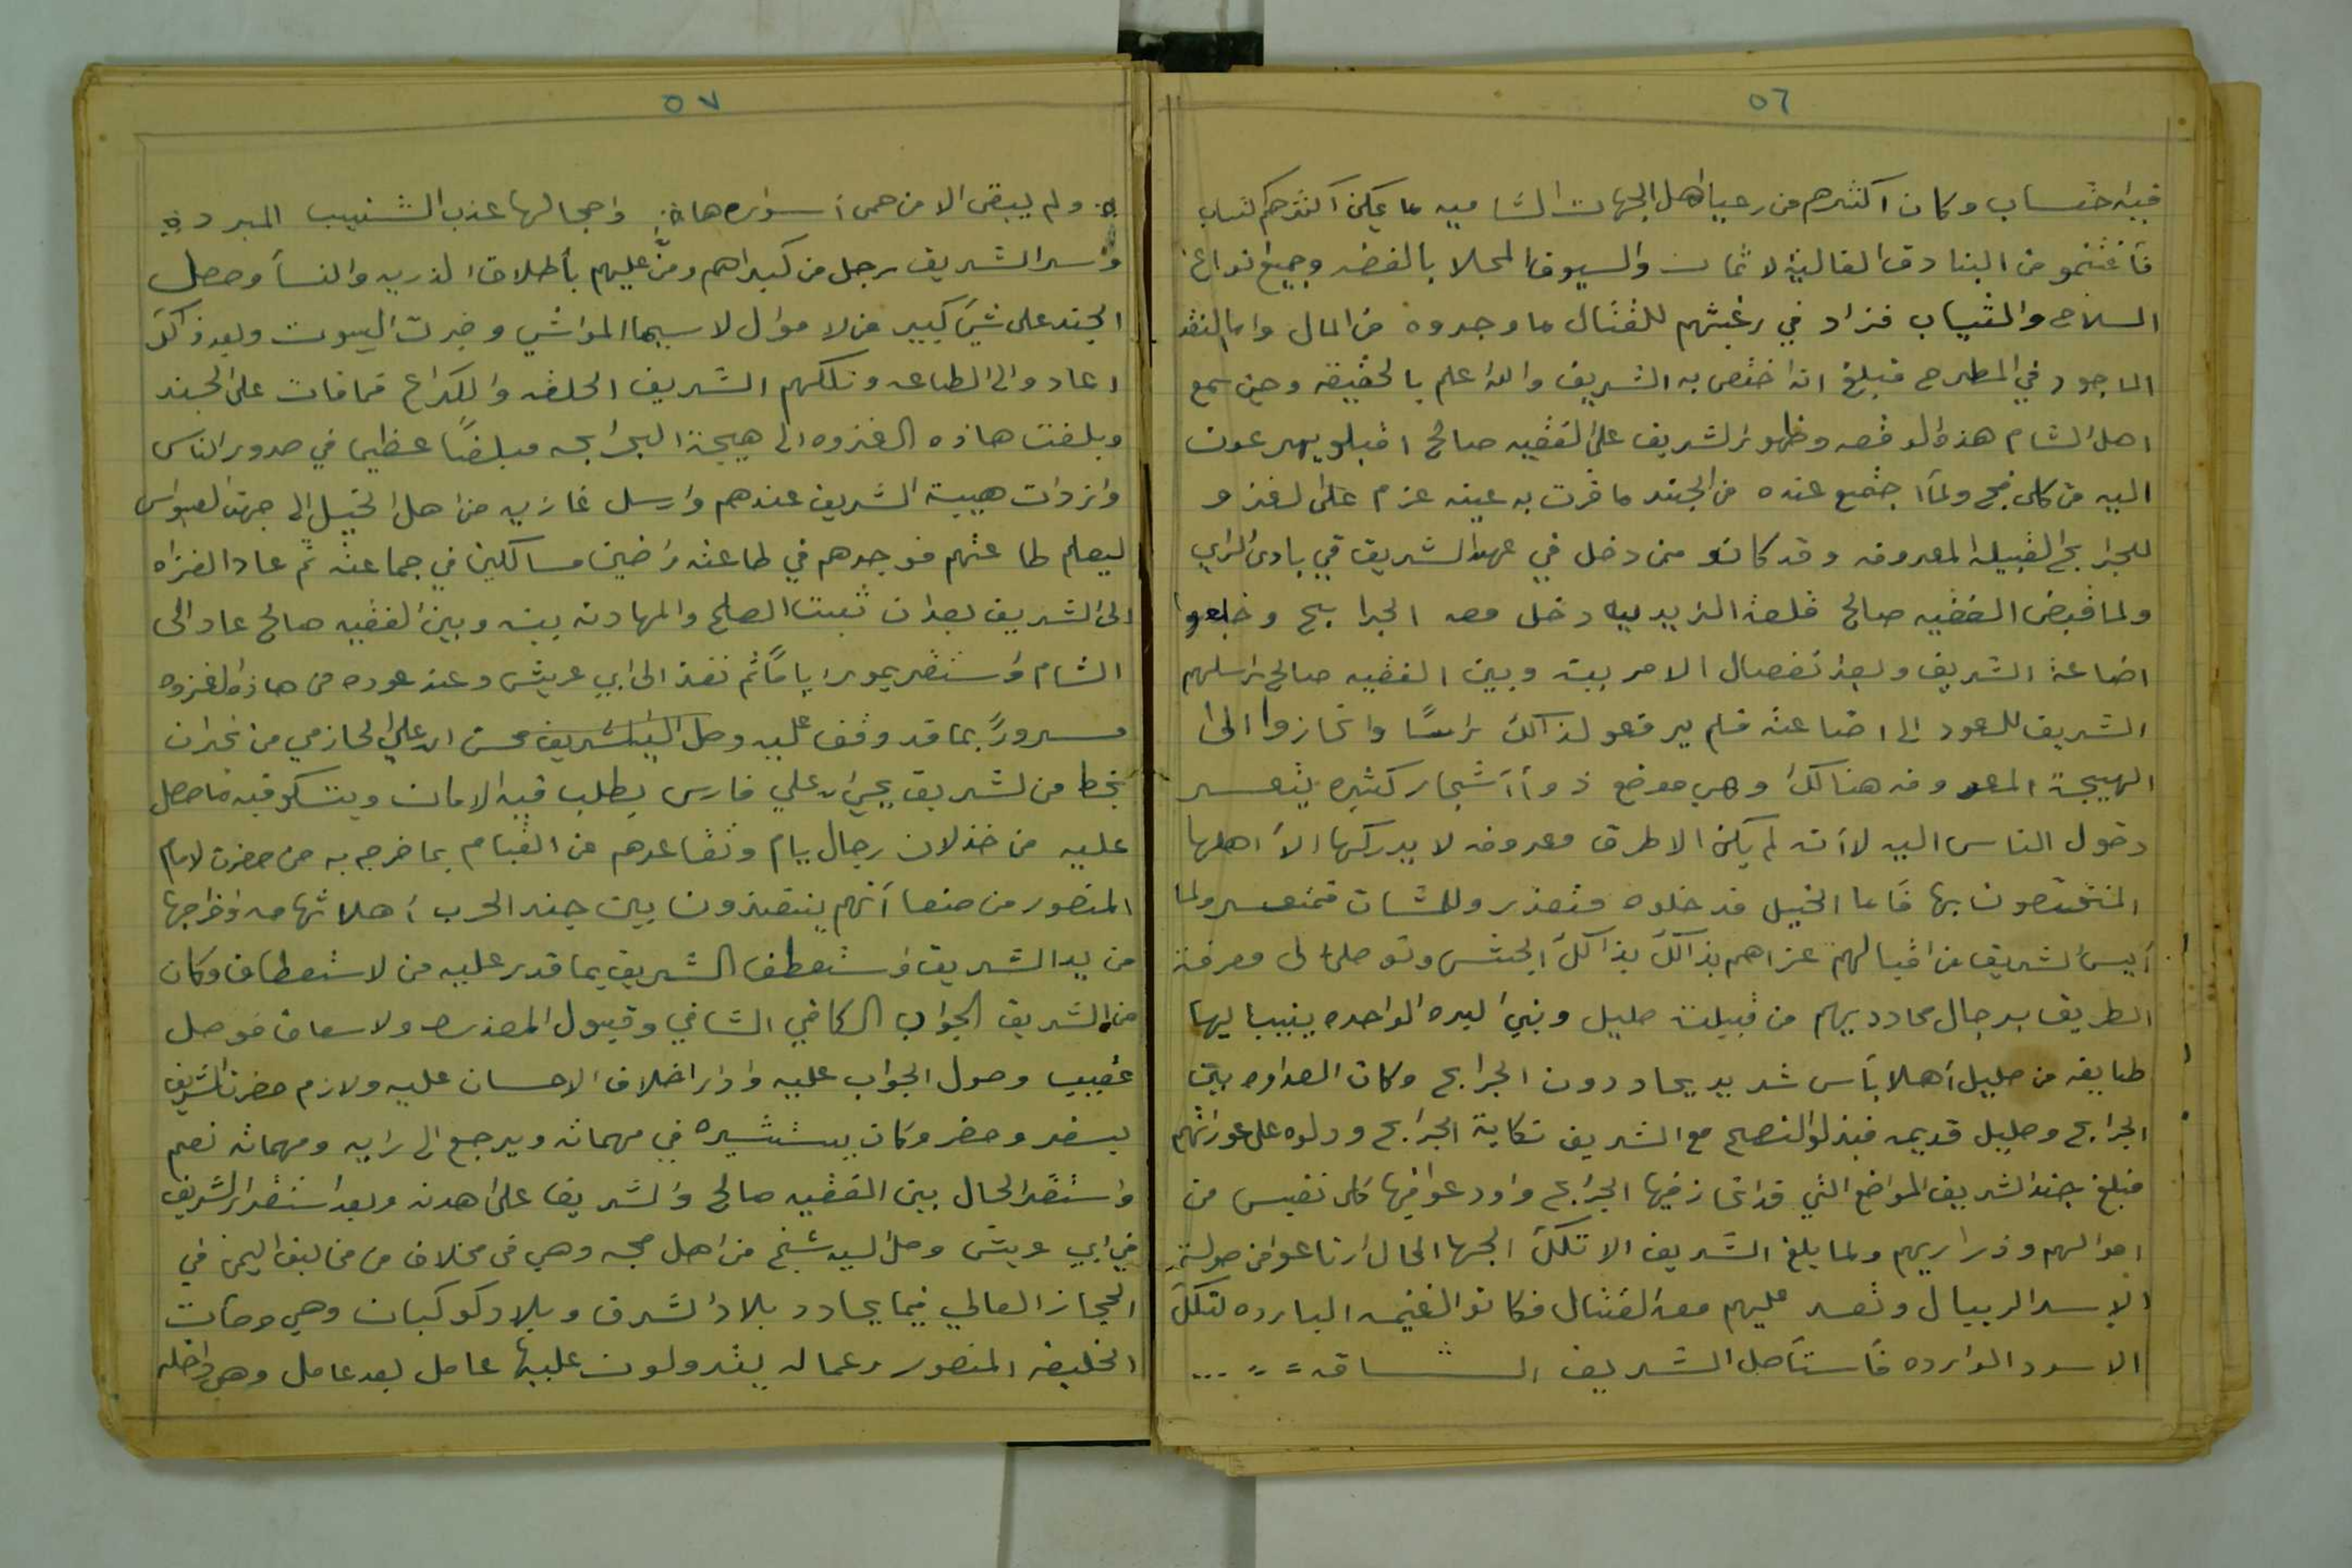 ٥٦
فيه احتساب وكان اكثرهم من رعيا اهل الجهات الشاميه ما يمكن اكثرهم كتاب
فأغتنمو من البنادق الغالية الاثمان والسيوف المحلا بالفضه وجميع انواع
السلاح والثياب فزاد في رغبتهم للقتال ما وجدوه من المال واما النقد
الماجود في المطرح فبلغ انه اختص به الشريف والله اعلم بالحقيقه وحين سمع
اهل الشام هذه الوقعه وظهور الشريف على الفقيه صالح اقبلو يهرعون
اليه من كل فج ولمّا اجتمع عنده من الجند ما قرت به عينه عزم على الغزو
للجرابح القبيله المعروفه وقد كانو ممن دخل في عهد الشريف في بادى الراي
ولما قبض الفقيه صالح قلعة الزيديه دخل معه الجرابح وخلعو
اضاعة الشريف وبعد انفصال الامر بينه وبين الفقيه صالح راسلهم
الشريف للعود الى اضاعته فلم يرفعو لذالك راسًا وانحازوا الى
الهيجة المعروفه هنالك وهي موضع ذو أأشجار كثيره يتعسر
دخول الناس اليه لأنه لم يكن الا طرق معروفه لا يدركها الا اهلها
المختصون بها فأما الخيل فدخلوه متعذر وللمشات فمتعسر ولما
أيس الشريف من اقبالهم غزاهم بذالك بذالك الجيش وتوصل الى معرفة
الطريق برجال محادديهم من قبيلة صليل وبني البره الواحده ينيبا ليها
طايفه من صليل أهلا بأس شديد يحاددون الجرابح وكان العداوه بين
الجرابح وصليل قديمه فبذلو النصح مع الشريف نكاية الجرابح ودلوه على عوراتهم
فبلغ جند الشريف المواضع التي قد انحاز فيها الجرابح واودعو فيها كل نفيس من
اموالهم وذراريهم ولما بلغ الشريف الا تلك الجها الحال ارتاعو من صولة
الاسد الريبال وتعسر عليهم معه القتال فكانو الغنيمه البارده لتلك
الاسود الوارده فأستأصل الشريف الشاقه = = ...
٥٧
ولم يبقى الا من حمى أسوارها واحجالها عذب الشنيب المبرد
واسر الشريف رجل من كبراهم ومنّ عليهم بأطلاق الذريه والنسأ وحصل
الجند على شئ كبير من الاموال لاسيما المواشي وخربت البيوت وبعد ذالك
اعادو الى الطاعه وتلكهم الشريف الحلقه والكراع قماقات على الجند
وبلغت هاذه الغزوه الى هيجة الجرابحه مبلغًا عظيما في صدور الناس
وازدات هيبة الشريف عندهم وارسل غازيه من اهل الخيل الى جهة العبواس
ليعلم طاعتهم فوجدهم في طاعته راضين مسالكين في جماعته ثم عاد الغزاه
الى الشريف بعد ان ثبت الصلح والمهادنه بينه وبين الفقيه صالح عاد الى
الشام واستقر بمور اياماً ثم نفذ الى ابي عريش وعند عوده من هاذه الغزوه
مسرورً بما قد وقف عليه وصل اليه الشريف محسن ابن علي الحازمي من نجران
بخط من الشريف يحيى ابن علي فارس يطلب فيه الامان ويشكو فيه ما حصل
عليه من خذلان رجال يام وتقاعدهم عن القيام بما خرجم به من حضرت الامام
المنصور من صنعا أنهم ينتقذون بين جند الحرب أهلا تهامه واخراجها
من يد الشريف واستعطف الشريف بما قدر عليه من الاستعطاف وكان
من الشريف الجواب الكافي الشافي وقبول المعذره والاسعاف فوصل
عقيب وصول الجواب عليه وادار اخلاف الاحسان عليه ولازم حضرت الشريف
بسفر وحضر وكان يستشيره في مهماته ويرجع الى رايه ومهماته نعم
واستقر الحال بين الفقيه صالح والشريف على اهدنه وبعد استقرار الشريف
في ابي عريش وصل اليه شيخ من اهل حجه وهي في مخلاف من مخاليف اليمن في
الحجاز العالي فيما يحادد بلاد الشرف وبلاد كوكبان وهي وكانت
الخليفه المنصور وعماله يتدولون عليها عامل بعد عامل وهي داخله